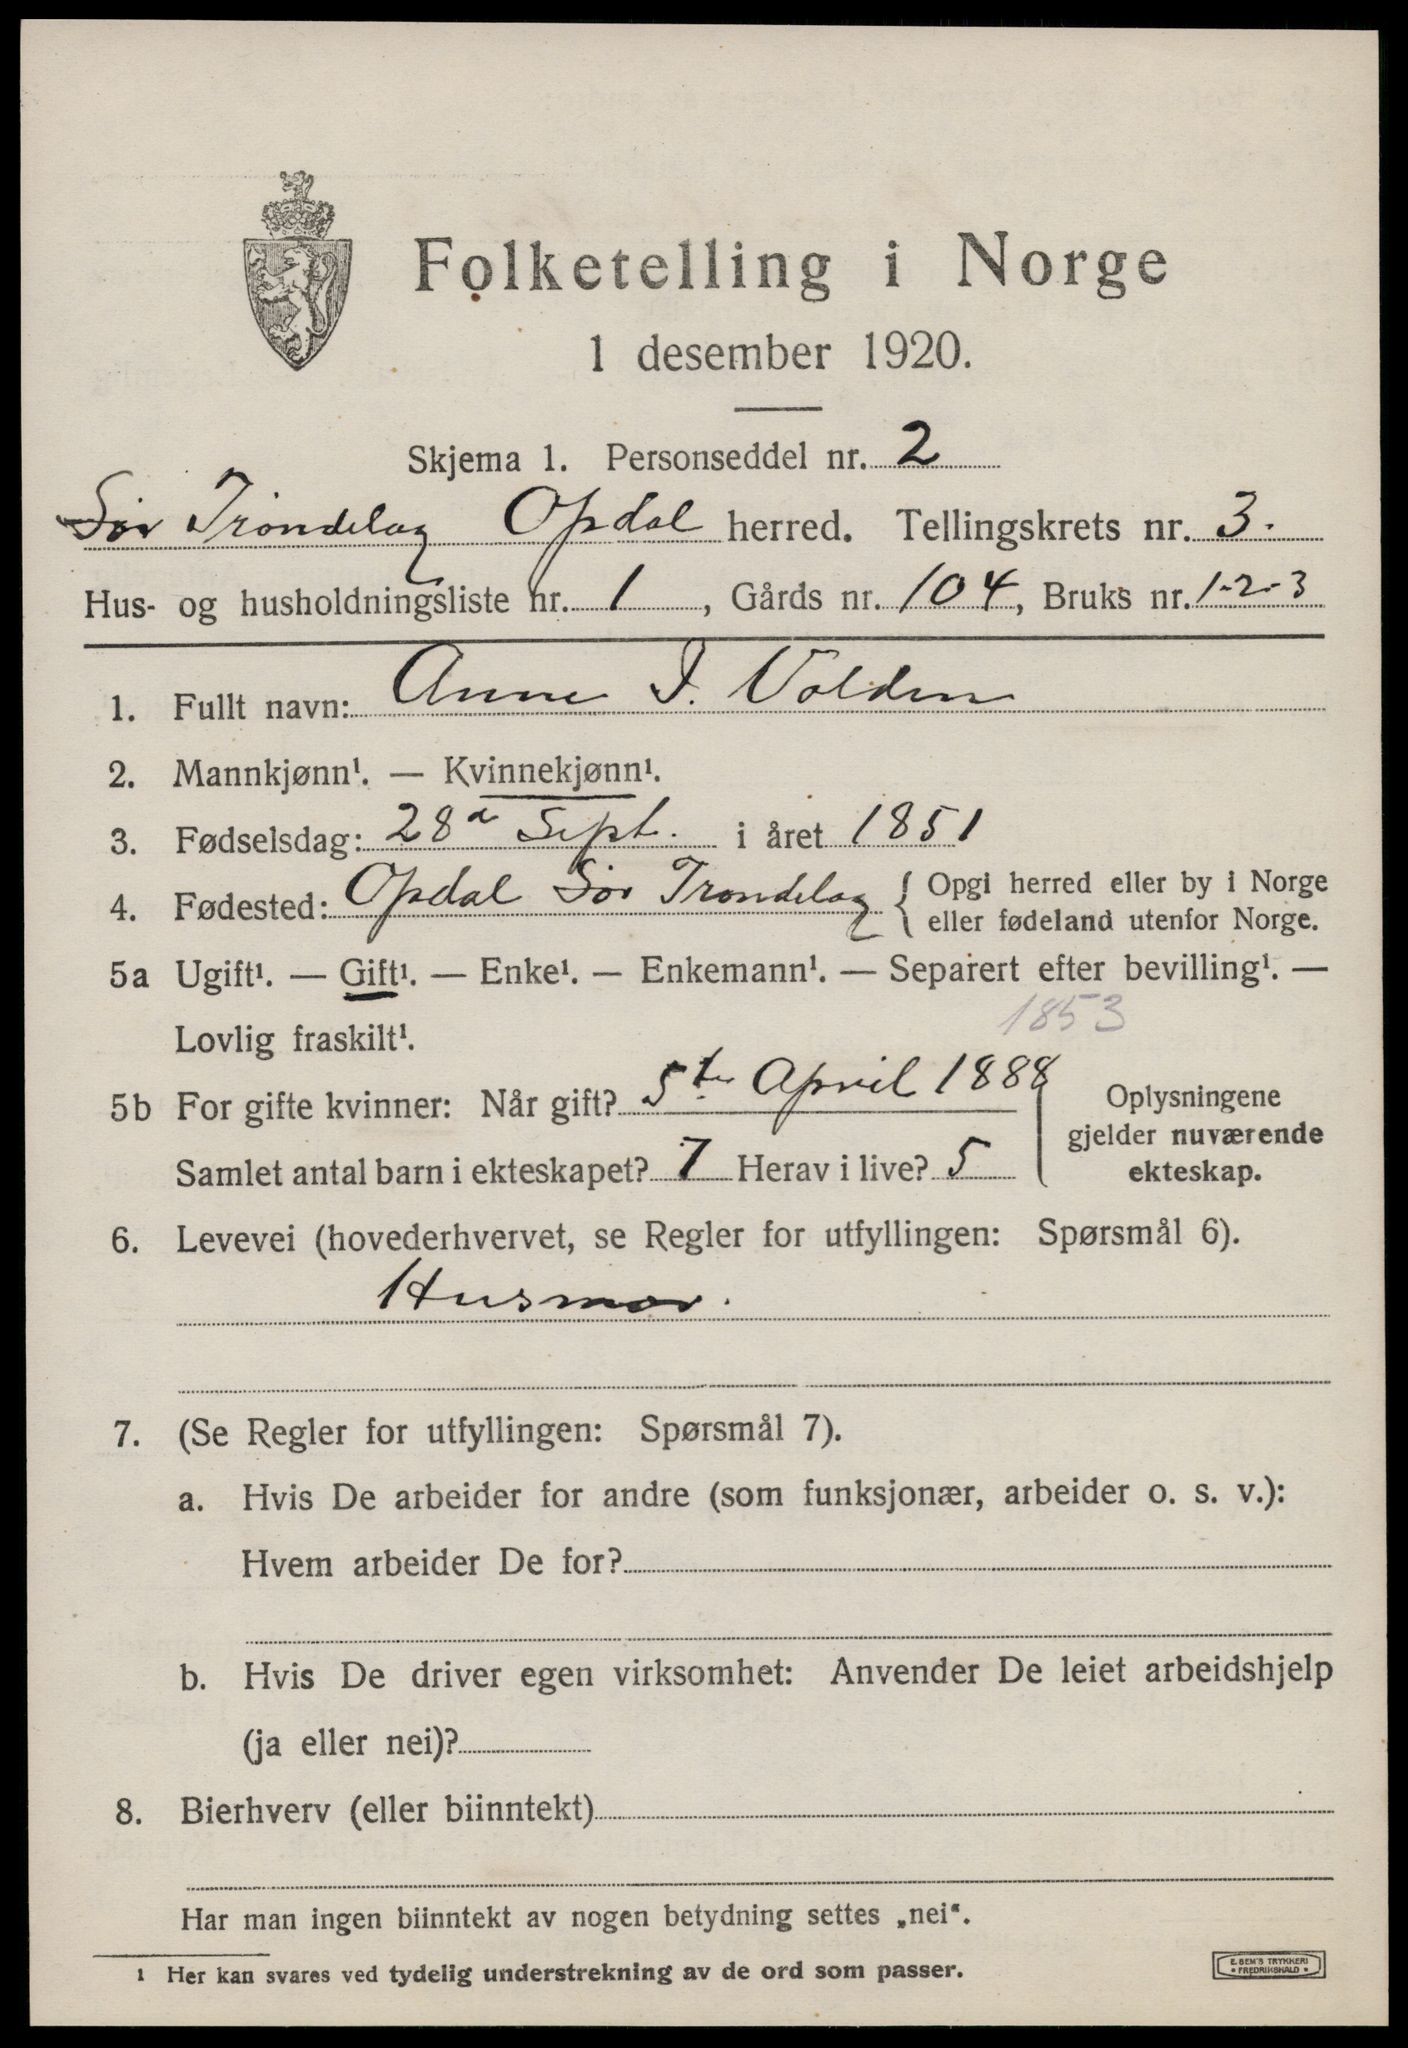 Folketelling i Norge
1 desember 1920.
Skjema 1. Personseddel nr. 2
Sør Trondelag Opdal herred. Tellingskrets nr. 3.
Hus- og husholdningsliste nr. 1, Gårds nr. 104, Bruks nr. 1-2-3
1. Fullt navn: Anne I. Volden
2. Mannkjønn¹. — Kvinnekjønn¹.
3. Fødselsdag: 28de Sept. i året 1851
4. Fødested: Opdal Sør Trondelag { Opgi herred eller by i Norge
eller fødeland utenfor Norge.
5a Ugift¹. — Gift¹. — Enke¹. — Enkemann¹. — Separert efter bevilling¹. —
Lovlig fraskilt¹. 1853
5b For gifte kvinner: Når gift? 5te April 1888
Samlet antal barn i ekteskapet? 7 Herav i live? 5
Oplysningene
gjelder nuværende
ekteskap.
6. Levevei (hovederhvervet, se Regler for utfyllingen: Spørsmål 6).
Husmor.
7. (Se Regler for utfyllingen: Spørsmål 7).
a. Hvis De arbeider for andre (som funksjonær, arbeider o. s. v.):
Hvem arbeider De for?
b. Hvis De driver egen virksomhet: Anvender De leiet arbeidshjelp
(ja eller nei)?
8. Bierhverv (eller biinntekt)
Har man ingen biinntekt av nogen betydning settes „nei“.
1 Her kan svares ved tydelig understrekning av de ord som passer.
E. SEM'S TRYKKERI
• FREDRIKSHALD •